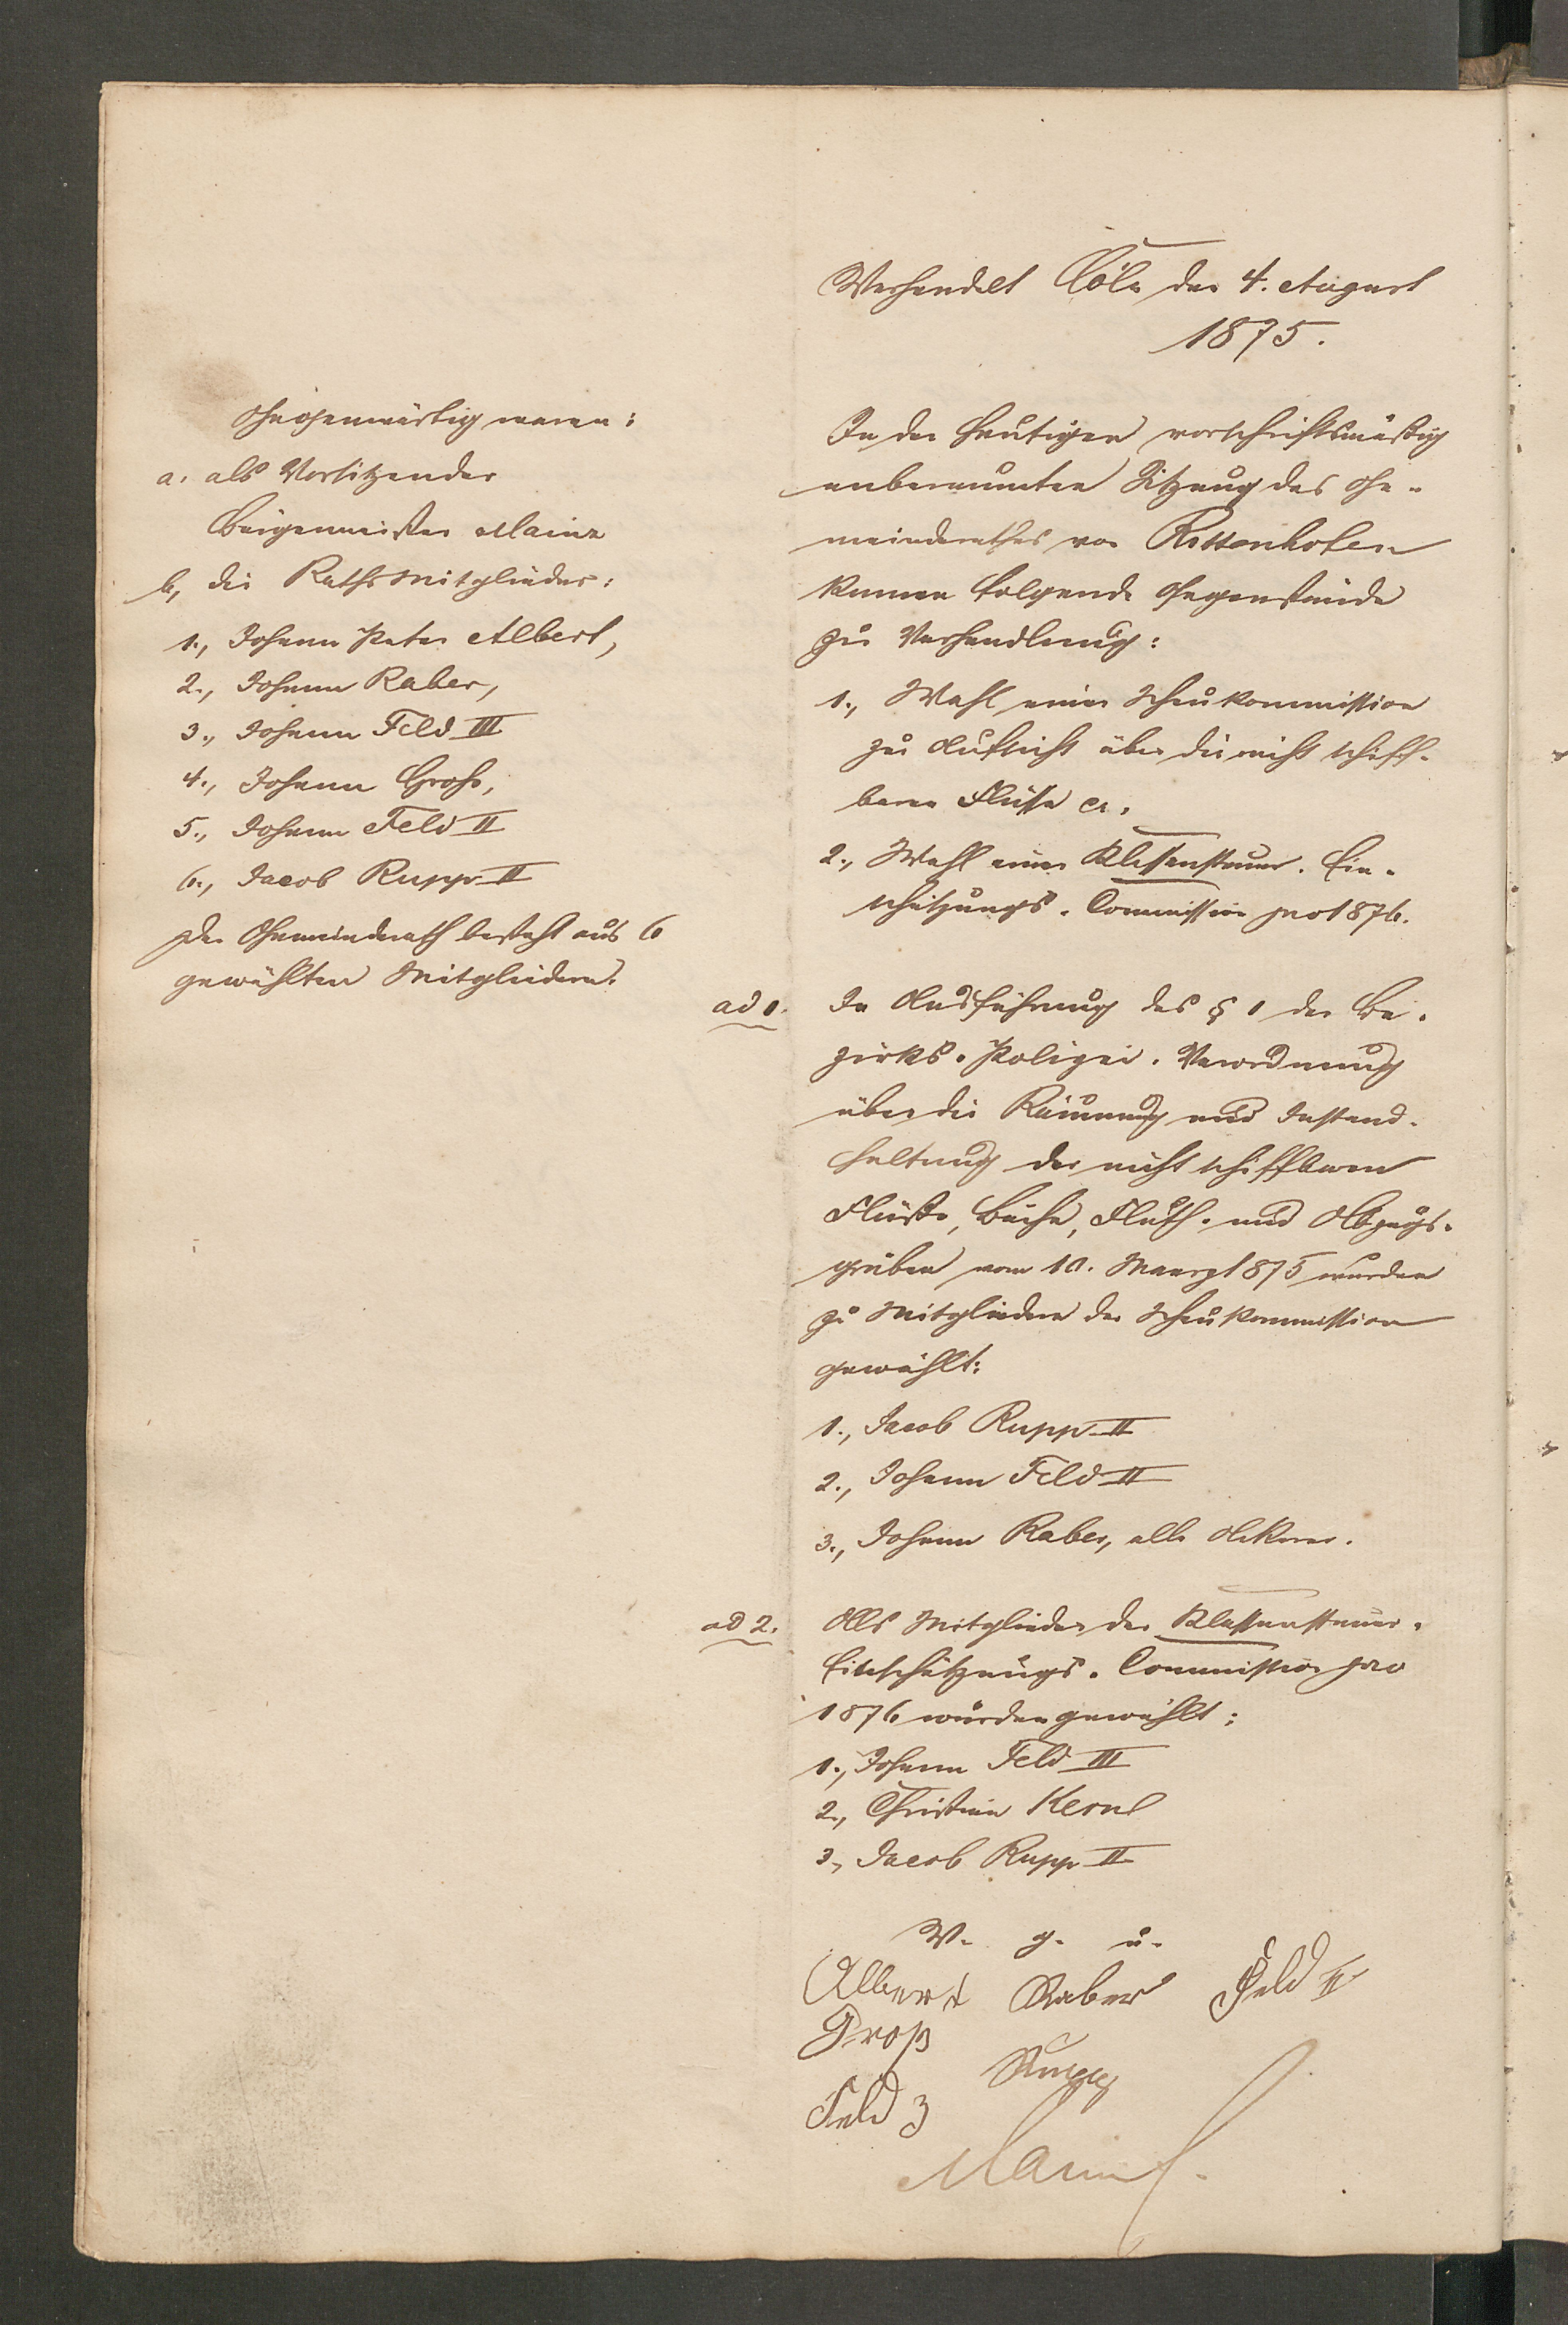 Verhandelt Cöln den 4. August
1875.
Gegenwärtig waren:
a. als Vorsitzender
Bürgermeister Mainz
b, die Rathsmitglieder:
1., Johann Peter Albert,
2., Johann Raber,
3., Johann Feld III
4., Johann Groß,
5., Johann Feld II
6., Jacob Rupp II
Der Gemeinderath besteht aus 6
gewählten Mitgliedern.
In der heutigen vorschriftsmäßig
anberaumten Sitzung des Ge-
meinderathes von Rittenhofen
kamen folgende Gegenstände
zur Verhandlung:
1., Wahl einer Schaukommission
zur Aufsicht über die nicht schiff-
baren Flüsse cr.
2., Wahl einer Klassensteuer-Ein-
schätzungs-Commission pro 1876.
ad 1. In Ausführung des § 1 der Be-
zirks-Polizei-Verordnung
über die Räumung und Instand-
haltung der nicht schiffbaren
Flüße, Bäche, Fluth- und Abzugs-
gräben vom 10. Maerz 1875 wurden
zu Mitgliedern der Schaukommission
gewählt:
1., Jacob Rupp II
2., Johann Feld II
3., Johann Raber, alle Ackerer.
ad 2. Als Mitglieder der Klassensteuer-
Einschätzungs-Commission pro
1876 wurden gewählt:
1., Johann Feld III
2., Christian Kernl
3., Jacob Rupp II
V. g. u.
Albert Raber Feld II
Groß
Rupp
Feld 3
Mainz